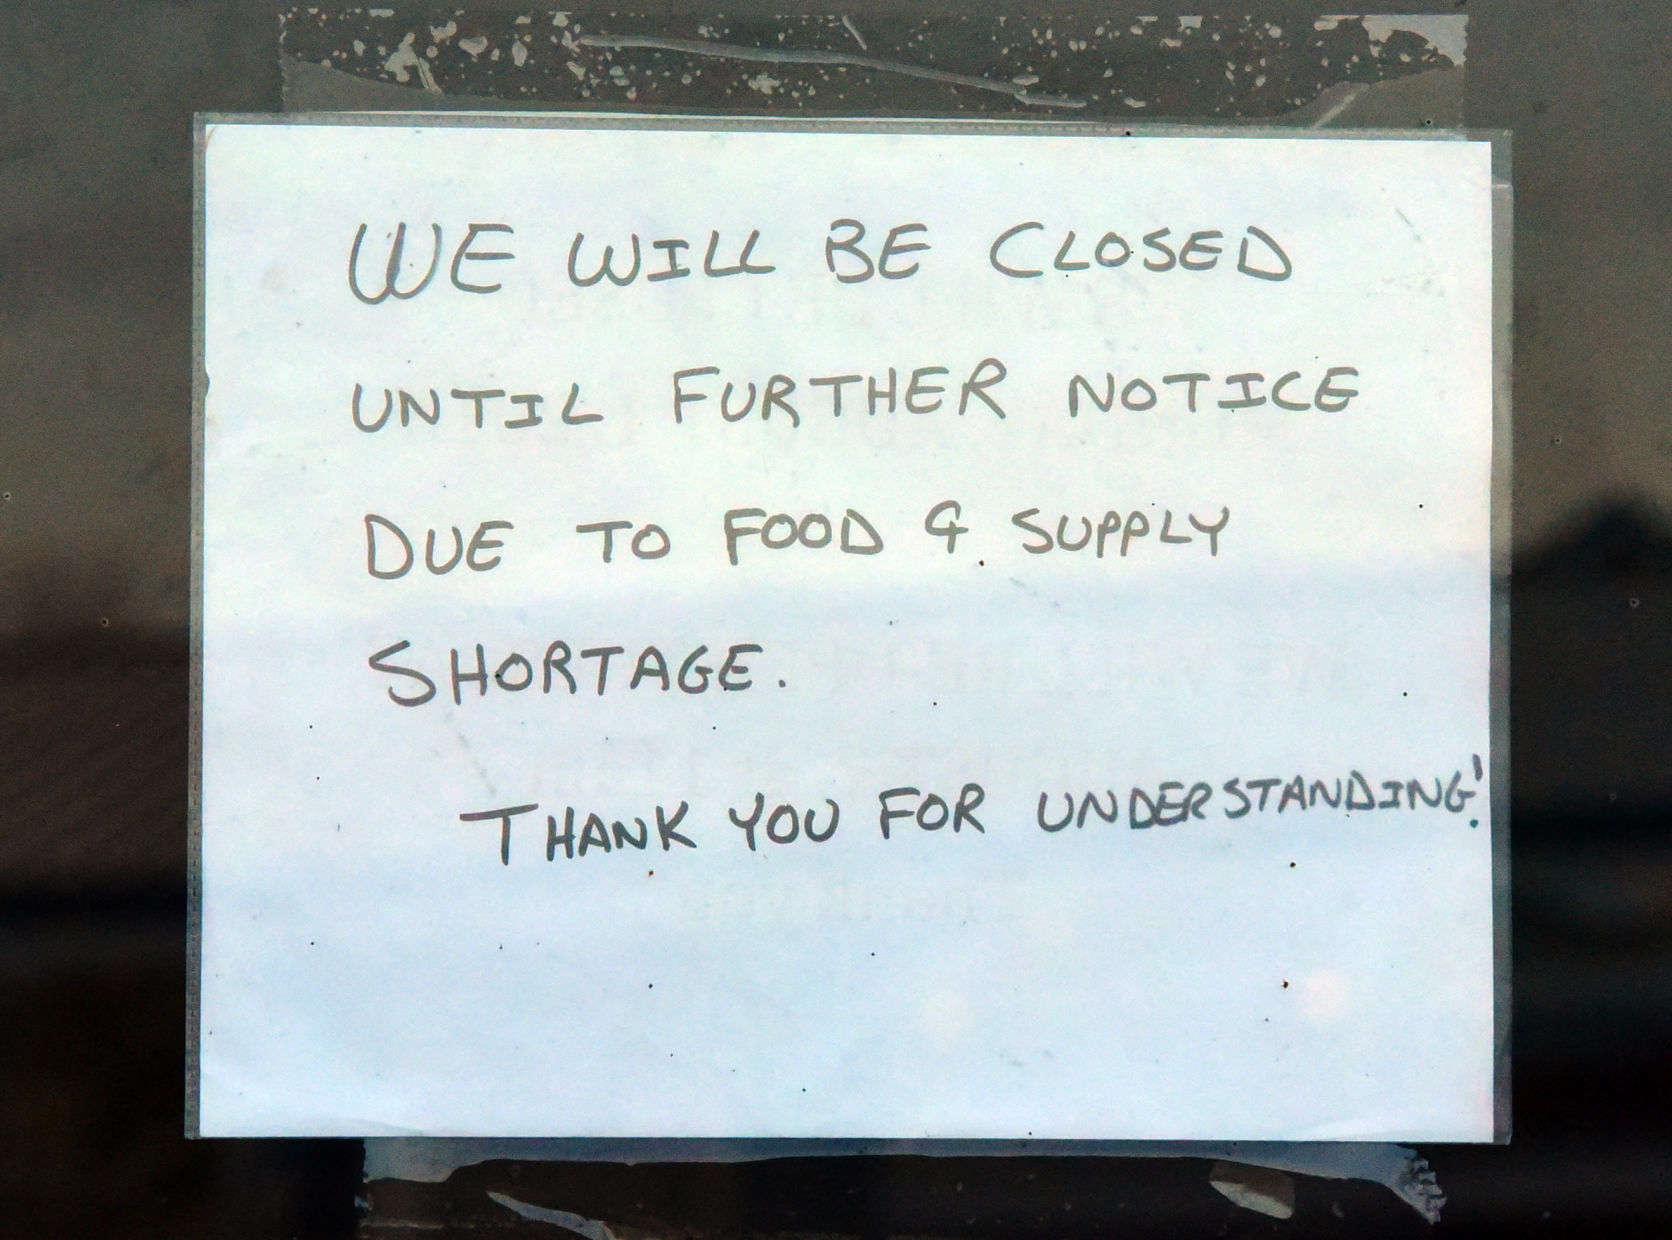 WE WILL BE CLOSED
UNTIL FURTHER NOTICE
DUE TO FOOD & SUPPLY
SHORTAGE.
THANK YOU FOR UNDERSTANDING!